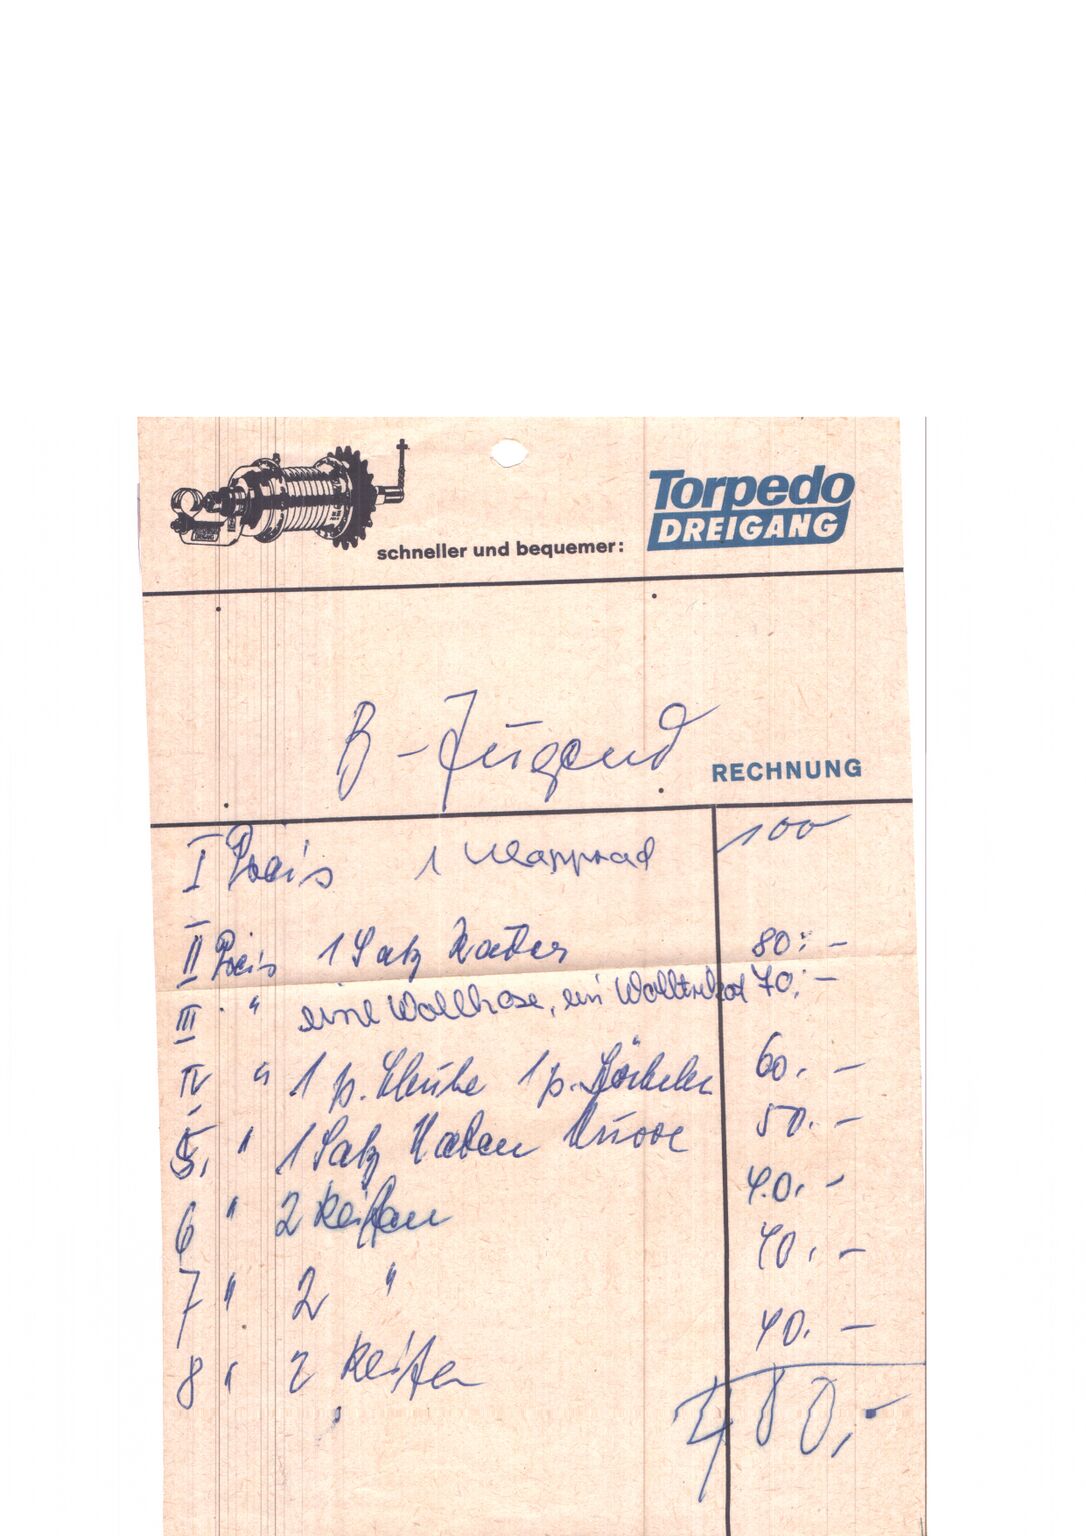 Torpedo
DREIGANG
schneller und bequemer:
B-Jugend
RECHNUNG
I Preis 1 Klapprad 100
II Preis 1 Satz Räder 80.-
III " eine Wollhose, ein Wolltrikot 70.-
IV " 1 p. Schuhe 1 p. Söckchen 60.-
5. " 1 Satz Naben 50.-
6 " 2 Reifen 40.-
7 " 2 " 40.-
8 " 2 Reifen 40.-
480,-